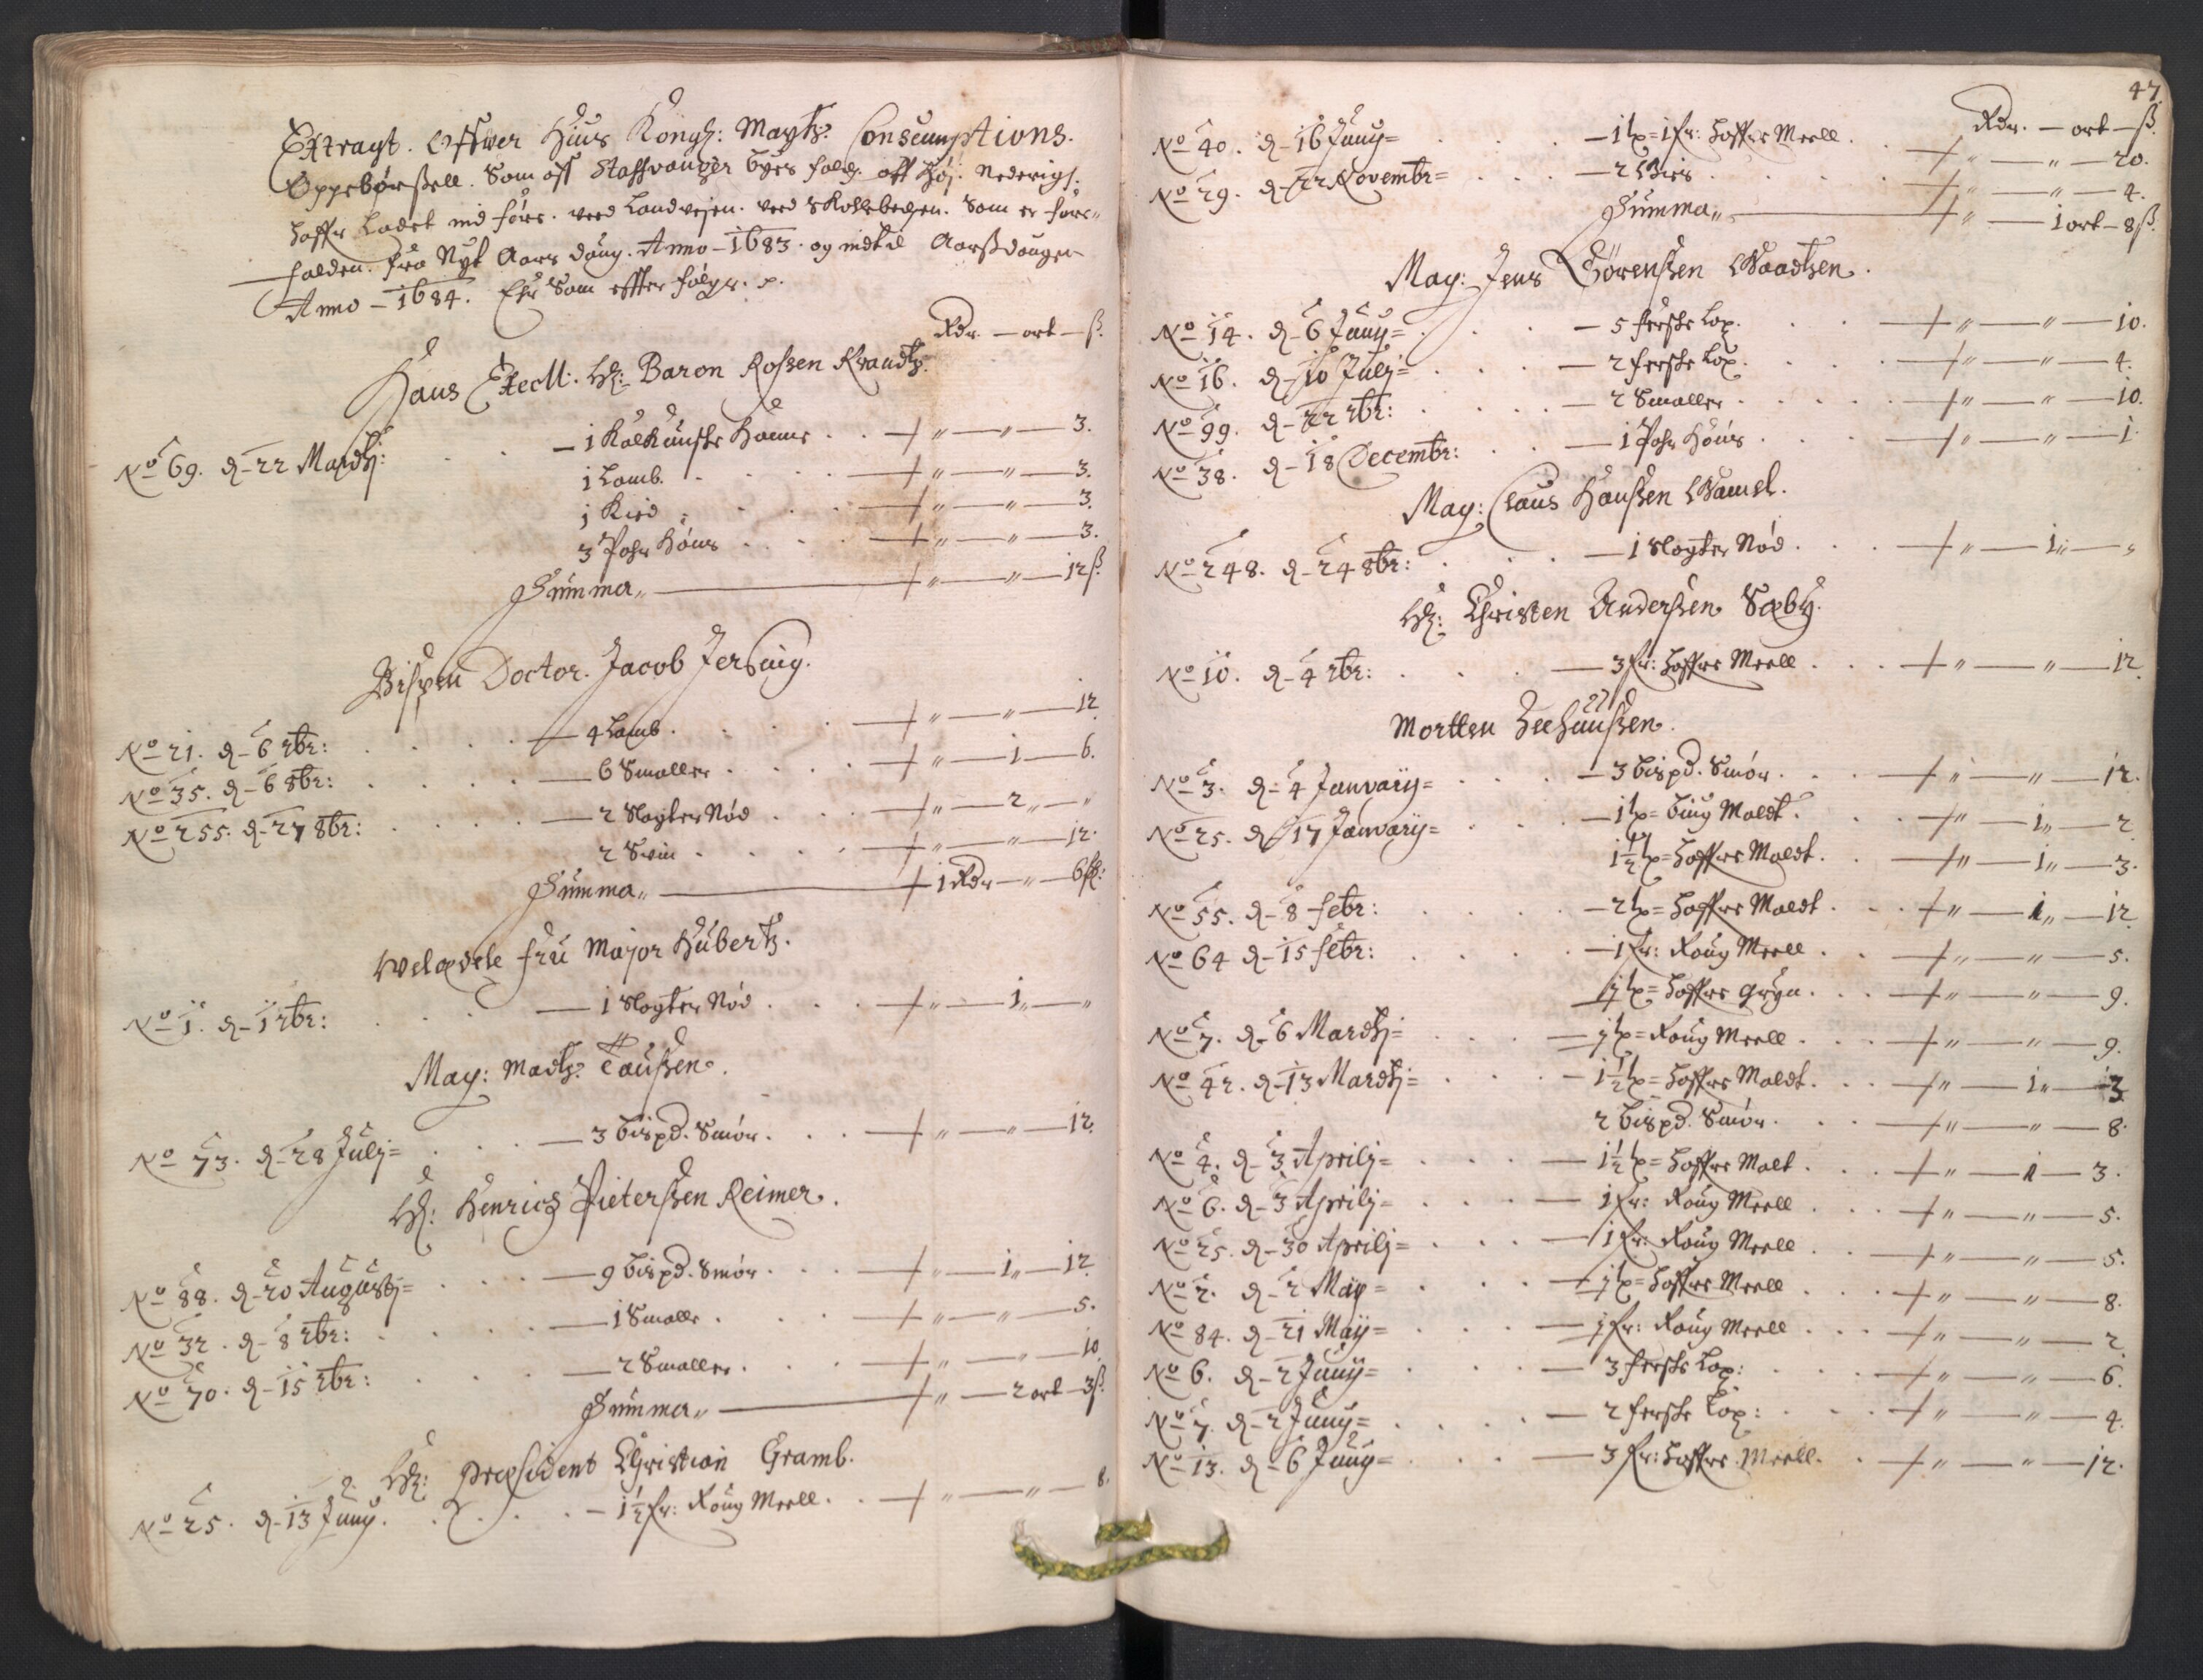 Extragt. Offwer Hans Kongl: Maytz. Consumptions.
Oppebørßell. Som aff Staffvanger byes folch. aff høj: Nederigh:
haffr ladet ind føre. ved Landvejen. ved Som er fore-
falden. fra Nyt Aars daug. Anno 1683. og indtil Aarßdaugen
Anno 1684. Ehr Som effter følger.
Rdr. ort ß.
Hans Excell. Hr: Baron Roßen Krandtz.
No 69. d. 22 Martj: 1 Kalkunske Haene " " 3.
1 Lamb. " " 3.
1 Kied " " 3.
3 Høns " " 3.
Summa " " 12 ß.
Bispen Doctor. Jacob Jersing.
No 21. d. 6 7br: 4 Lamb. " " 12
No 35. d. 6 8br: 6 Smaller " 1 6.
No 255. d. 27 8br: 2 Slagter Nød " 2 "
2 Svin " " 12.
Summa 1 Rdr " 6 ß:
Velædele Fru Major Hubertz.
No 1. d. 1 7br: 1 Slagter Nød " 1 "
Mag: Madtz. Taußen.
No 73. d. 28 Julj 3 bispd. Smør " " 12.
Hr: Henrich Pieterßen Reimer.
No 88. d. 20 Augustj 9 bispd. Smør " 1 12
No 32. d. 8 7br: 1 Smalle " " 5.
No 70. d. 15 7br: 2 Smaller " " 10
Summa " 2 ort 3 ß.
Hr: Præsident Christian Gramb.
No 25. d. 13 Junj. 1½ fr: Roug Meell " " 8.
47
Rdr. ort ß.
No 40. d. 16 Junj 1 lp 1 fr: haffre Meell " " 20.
No 29. d. 22 Novembr 2 " " 4.
Summa " 1 ort 8 ß.
Mag: Jens Sørenßen Waadtzen.
No 14. d. 6 Junj 5 ferske Lax. " " 10.
No 16. d. 10 Julj 2 ferske Lax. " " 4.
No 99. d. 22 7br: 2 Smaller " " 10.
No 38. d. 18 Decembr: 1 Høns " " 1.
Mag: Claus Hanßen Wamel.
No 248. d. 24 8br: 1 Slagter Nød " 1 "
Hr: Christen Anderßen Sæby.
No 10. d. 4 7br: 3 fr: haffre Meell " " 12
Mortten Seehuußen.
No 3. d. 4 Januarij 3 bispd. Smør " " 12.
No 25. d. 17 Januarij 1 lp biug Maldt " 1 2
1½ lp haffre Maldt " 1 3.
No 55. d. 8 febr: 2 lp haffre Maldt " 1 12
No 64 d. 15 febr: 1 fr: Roug Meell " " 5.
1 lp haffre gryn " " 9.
No 7. d. 6 Martj 1 lp Roug Meell " " 9.
No 42. d. 13 Martj 1½ lp haffre Maldt " 1 3
2 bispd. Smør " " 8.
No 4. d. 3 Aprilj 1½ lp haffre Malt " 1 3.
No 6. d. 3 Aprilj 1 fr: Roug Meell " " 5.
No 25. d. 30 Aprilj 1 fr: Roug Meell " " 5.
No 2. d. 2 Maij 1 lp haffre Meell " " 8.
No 84. d. 21 Maij fr: Roug Meell " " 2
No 6. d. 2 Junij 3 ferske Lax: " " 6.
No 7. d. 2 Junij 2 ferske Lax: " " 4.
No 13. d. 6 Junij 3 fr: haffre Meell. " " 12.